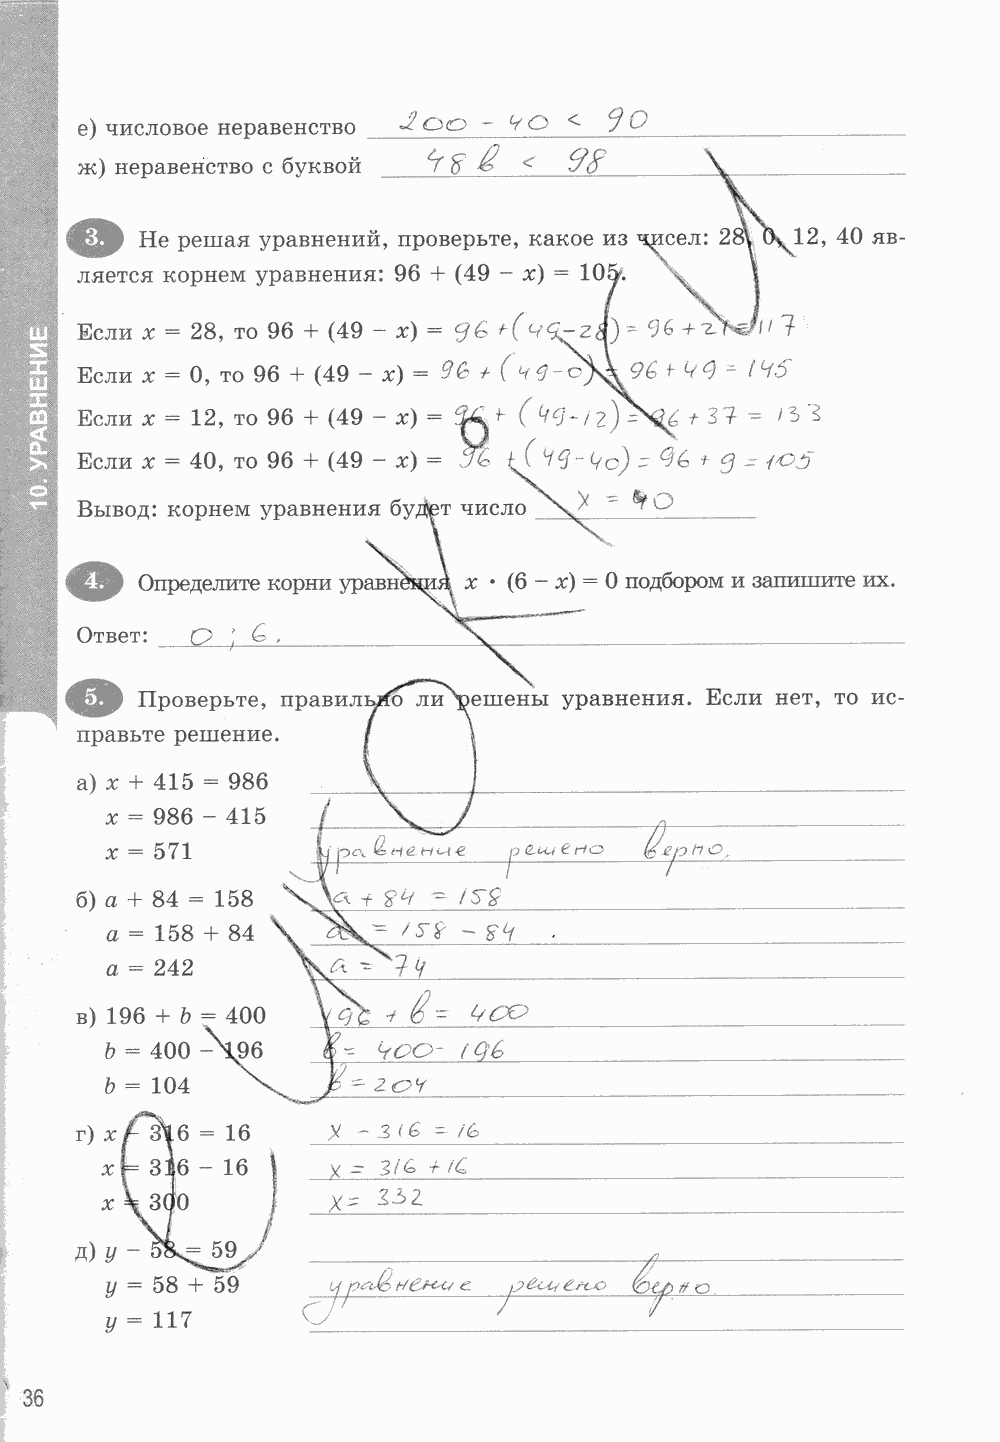 е) числовое неравенство 200 - 40 < 90
ж) неравенство с буквой 48 в < 98
3. Не решая уравнений, проверьте, какое из чисел: 28, 0, 12, 40 яв-
ляется корнем уравнения: 96 + (49 − x) = 105.
Если x = 28, то 96 + (49 − x) = 96 + (49-28) = 96 + 21 = 117
Если x = 0, то 96 + (49 − x) = 96 + (49-0) = 96 + 49 = 145
Если x = 12, то 96 + (49 − x) = 96 + (49-12) = 96 + 37 = 133
Если x = 40, то 96 + (49 − x) = 96 + (49-40) = 96 + 9 = 105
Вывод: корнем уравнения будет число x = 40
4. Определите корни уравнения x · (6 − x) = 0 подбором и запишите их.
Ответ: 0 ; 6.
5. Проверьте, правильно ли решены уравнения. Если нет, то ис-
правьте решение.
а) x + 415 = 986
x = 986 − 415
x = 571 уравнение решено верно.
б) a + 84 = 158 a + 84 = 158
a = 158 + 84 a = 158 - 84
a = 242 a = 74
в) 196 + b = 400 196 + в = 400
b = 400 − 196 в = 400 - 196
b = 104 в = 204
г) x − 316 = 16 x - 316 = 16
x = 316 − 16 x = 316 + 16
x = 300 x = 332
д) y − 58 = 59
y = 58 + 59 уравнение решено верно.
y = 117
10. УРАВНЕНИЕ
36